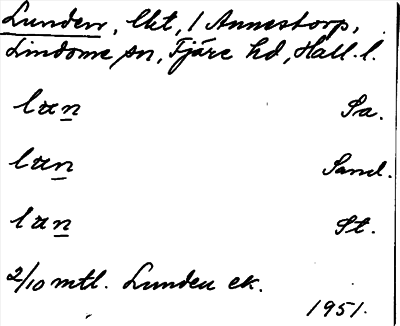 Lunden, lkt, 1 Annestorp,
Lindome sn, Fjäre hd, Hall. l.
lun Sa.
lun Sand.
lun St.
2/10 mtl. Lunden ek.
1951.